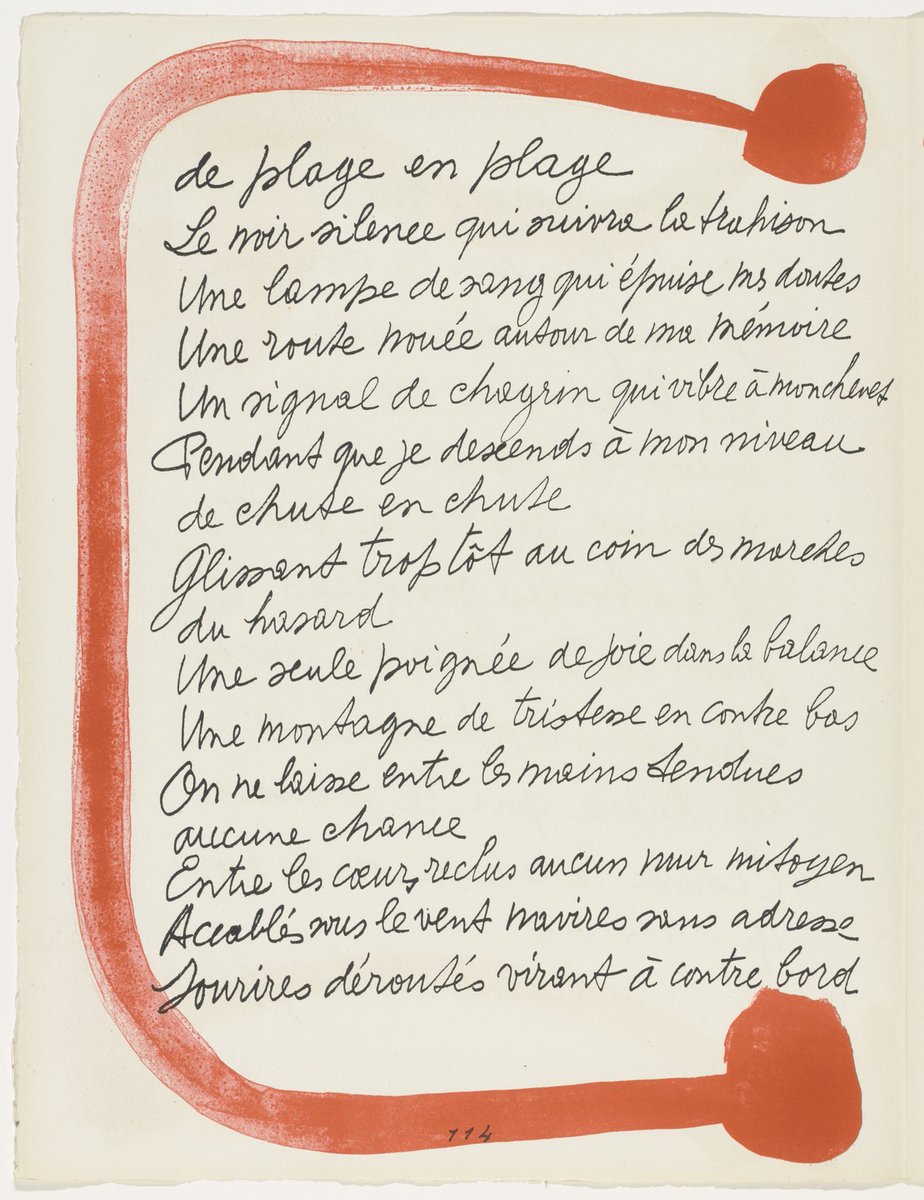 de plage en plage
Le noir silence qui suivra la trahison
Une lampe de sang qui épuise mes doutes
Une route nouée autour de ma mémoire
Un signal de chagrin qui vibre à mon chevet
Pendant que je descends à mon niveau
de chute en chute
Glissant trop tôt au coin des marches
du hasard
Une seule poignée de joie dans la balance
Une montagne de tristesse en contre bas
On ne laisse entre les mains tendues
aucune chance
Entre les cœurs reclus aucun mur mitoyen
Accablés sous le vent navires sans adresse
Sourires déroutés virant à contre bord
114